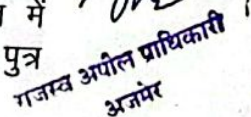 में
पुत्र
राजस्व अपील प्राधिकारी
अजमेर